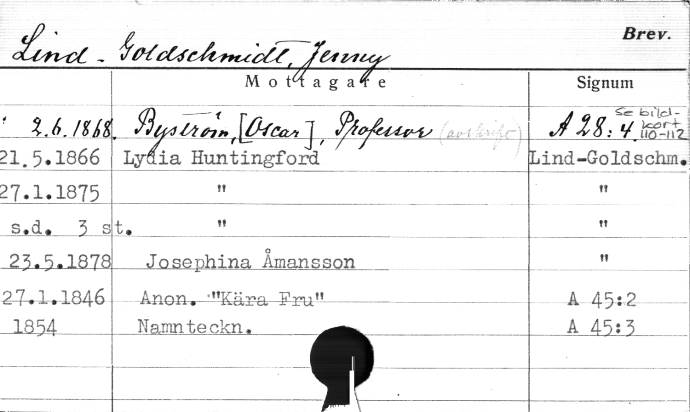 Brev.
Lind - Goldschmidt, Jenny
Mottagare Signum
2.6.1868. Byström, [Oscar], Professor (avskrift) A 28:4. se bild-kort 110-112
21.5.1866 Lydia Huntingford Lind-Goldschm.
27.1.1875 " "
s.d. 3 st. " "
23.5.1878 Josephina Åmansson "
27.1.1846 Anon. "Kära Fru" A 45:2
1854 Namnteckn. A 45:3